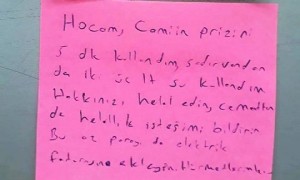 Hocom, Camiin prizini
5 dk kullandım, şadırvandan
da iki üç lt su kullandım
Hakkınızı helal edin, cemaatten
de helallik isteğimi bildirin
Bu az parayı da elektrik
faturasına ekleyin. Hürmetlerimle